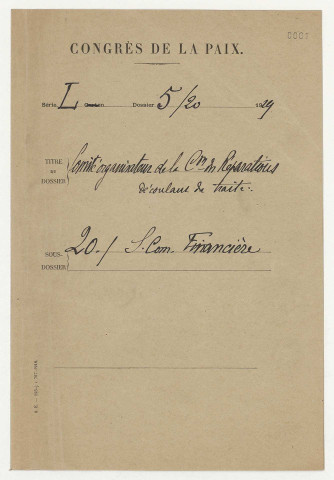 0001
CONGRÈS DE LA PAIX.
Série L Carton Dossier 5/20 1919
TITRE DU DOSSIER Comité organisateur de la Con des Réparations
découlant du traité.
SOUS-DOSSIER 20./ S. Com. Financière